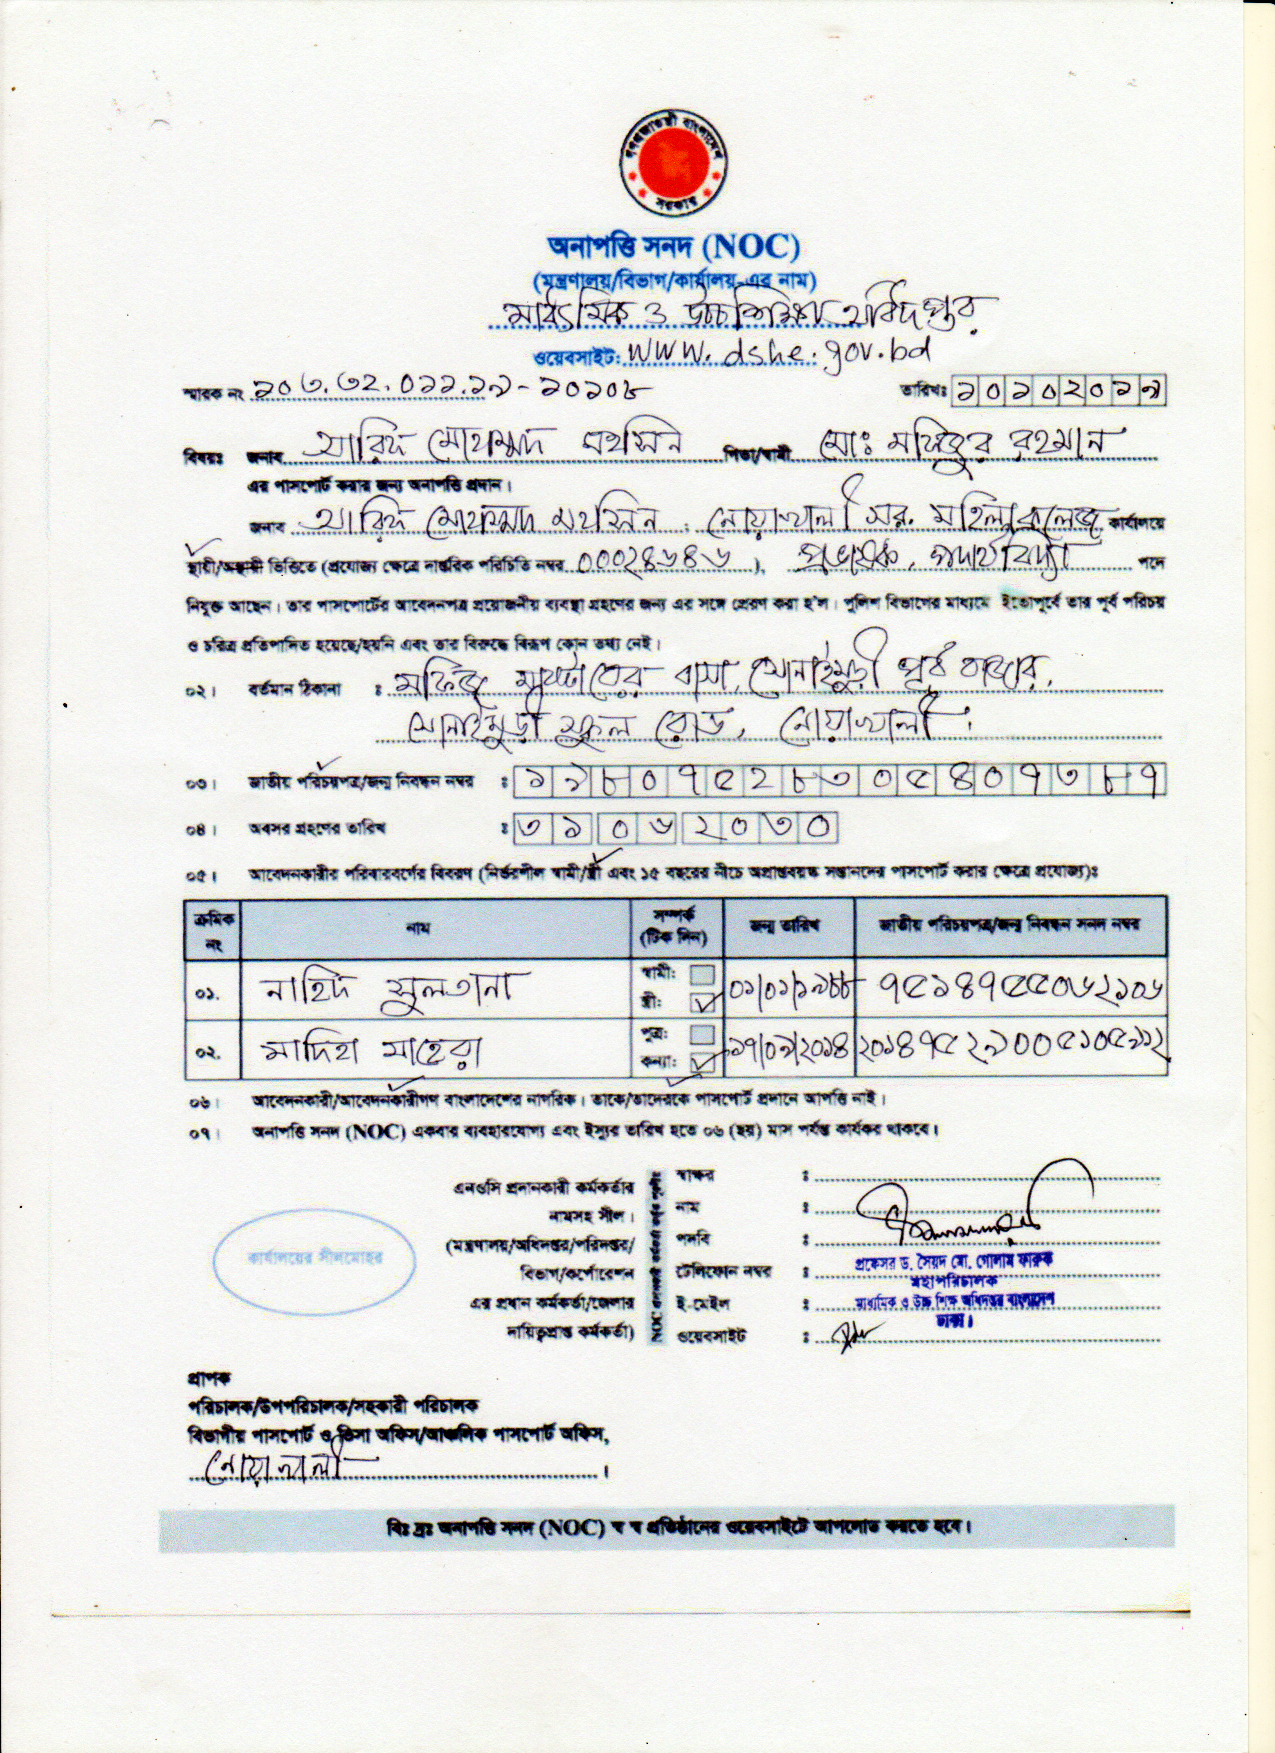 গণপ্রজাতন্ত্রী বাংলাদেশ
সরকার
অনাপত্তি সনদ (NOC)
(মন্ত্রণালয়/বিভাগ/কার্যালয়-এর নাম)
মাধ্যমিক ও উচ্চশিক্ষা অধিদপ্তর
ওয়েবসাইট: www.dshe.gov.bd
স্মারক নং ১০৩.৩২.০১১.১৯-১০১০৮ তারিখঃ ১০১০২০১৯
বিষয়ঃ জনাব আরিফ মোহাম্মদ মহসিন পিতা/স্বামী মোঃ মফিজুর রহমান
এর পাসপোর্ট করার জন্য অনাপত্তি প্রদান।
জনাব আরিফ মোহাম্মদ মহসিন, নোয়াখালী সর. মহিলা কলেজ কার্যালয়ে
স্থায়ী/অস্থায়ী ভিত্তিতে (প্রযোজ্য ক্ষেত্রে দাপ্তরিক পরিচিতি নম্বর ০০০২৪৬৪৬), প্রভাষক, পদার্থবিদ্যা পদে
নিযুক্ত আছেন। তার পাসপোর্টের আবেদনপত্র প্রয়োজনীয় ব্যবস্থা গ্রহণের জন্য এর সঙ্গে প্রেরণ করা হ'ল। পুলিশ বিভাগের মাধ্যমে ইতোপূর্বে তার পূর্ব পরিচয়
ও চরিত্র প্রতিপাদিত হয়েছে/হয়নি এবং তার বিরুদ্ধে বিরূপ কোন তথ্য নেই।
০২। বর্তমান ঠিকানা : মফিজ মাস্টারের বাসা, সোনাইমুড়ী পূর্ব বাজার,
সোনাইমুড়ী স্কুল রোড, নোয়াখালী।
০৩। জাতীয় পরিচয়পত্র/জন্ম নিবন্ধন নম্বর : ১৯৮০৭৫২৮৩০৫৪০৭৩৮৭
০৪। অবসর গ্রহণের তারিখ : ৩১০৬২০৩০
০৫। আবেদনকারীর পরিবারবর্গের বিবরণ (নির্ভরশীল স্বামী/স্ত্রী এবং ১৫ বছরের নীচে অপ্রাপ্তবয়স্ক সন্তানদের পাসপোর্ট করার ক্ষেত্রে প্রযোজ্য)ঃ
ক্রমিক নং নাম সম্পর্ক (টিক দিন) জন্ম তারিখ জাতীয় পরিচয়পত্র/জন্ম নিবন্ধন সনদ নম্বর
০১. নাহিদ সুলতানা স্বামী: স্ত্রী: ০১/০১/১৯৮৮ ৭৫১৪৭৫৫০৬২১০৬
০২. মাদিহা মাহেরা পুত্র: কন্যা: ১৭/০৯/২০১৪ ২০১৪৭৫২৯০০৫১০৫৯১২
০৬। আবেদনকারী/আবেদনকারীগণ বাংলাদেশের নাগরিক। তাকে/তাদেরকে পাসপোর্ট প্রদানে আপত্তি নাই।
০৭। অনাপত্তি সনদ (NOC) একবার ব্যবহারযোগ্য এবং ইস্যুর তারিখ হতে ০৬ (ছয়) মাস পর্যন্ত কার্যকর থাকবে।
স্বাক্ষর :
এনওসি প্রদানকারী কর্মকর্তার
নামসহ সীল। নাম :
(মন্ত্রণালয়/অধিদপ্তর/পরিদপ্তর/ পদবি :
কার্যালয়ের সীলমোহর
প্রফেসর ড. সৈয়দ মো. গোলাম ফারুক
বিভাগ/কর্পোরেশন টেলিফোন নম্বর :
মহাপরিচালক
এর প্রধান কর্মকর্তা/জেলার ই-মেইল :
মাধ্যমিক ও উচ্চ শিক্ষা অধিদপ্তর বাংলাদেশ
ঢাকা।
দায়িত্বপ্রাপ্ত কর্মকর্তা) ওয়েবসাইট :
প্রাপক
পরিচালক/উপপরিচালক/সহকারী পরিচালক
বিভাগীয় পাসপোর্ট ও ভিসা অফিস/আঞ্চলিক পাসপোর্ট অফিস,
নোয়াখালী।
বিঃ দ্রঃ অনাপত্তি সনদ (NOC) স্ব স্ব প্রতিষ্ঠানের ওয়েবসাইটে আপলোড করতে হবে।